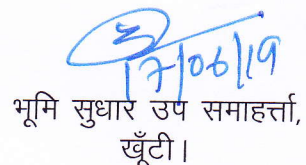 17/06/19
भूमि सुधार उप समाहर्त्ता,
खूँटी।